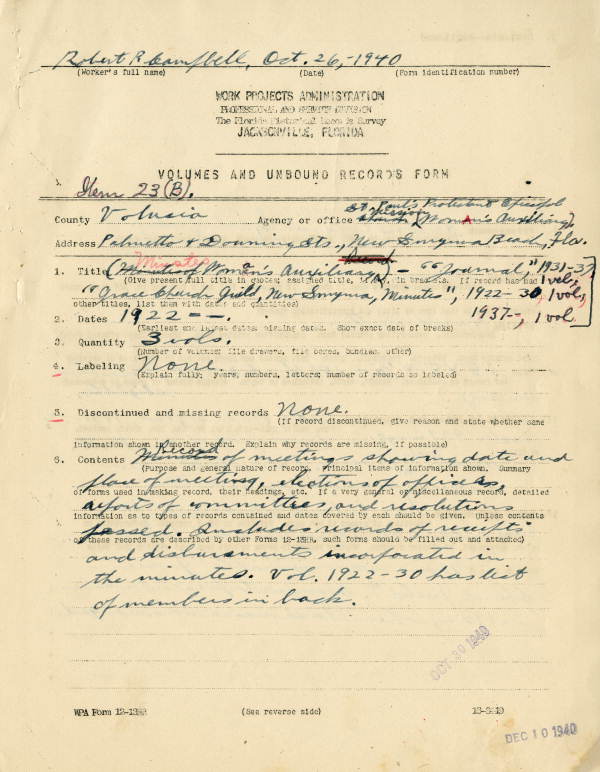 Robert R. Campbell, Oct. 26,-1940
(Worker's full name) (Date) (Form identification number)
WORK PROJECTS ADMINISTRATION
PROFESSIONAL AND SERVICE DIVISION
The Florida Historical Records Survey
JACKSONVILLE, FLORIDA
VOLUMES AND UNBOUND RECORDS FORM
Item 23(B).
St. Paul's Protestant Episcopal
County Volusia Agency or office (Woman's Auxiliary),
Address Palmetto & Downing Sts., New Smyrna Beach, Fla.
Minutes Record
1. Title (Minutes of Woman's Auxiliary) - "Journal," 1931-37
(Give present full title in quotes; assigned title, if any, in brackets. If record has had 1 vol.,
"Grace Church Guild, New Smyrna, Minutes", 1922-30 1 vol.,
other titles, list them with dates and quantities)
1937-, 1 vol.
2. Dates 1922 - -.
(Earliest and latest dates; missing dates. Show exact date of breaks)
3. Quantity 3 vols.
(Number of volumes; file drawers, file boxes, bundles, other)
4. Labeling None.
(Explain fully; years, numbers, letters; number of records so labeled)
5. Discontinued and missing records None.
(If record discontinued, give reason and state whether same
information shown in another record. Explain why records are missing, if possible)
Record
6. Contents Minutes of meetings showing date and
(Purpose and general nature of record. Principal items of information shown. Summary
place of meeting, elections of officers,
of forms used in making record, their headings, etc. If a very general or miscellaneous record, detailed
reports of committees, and resolutions
information as to types of records contained and dates covered by each should be given. (Unless contents
passed. Includes records of receipts
of these records are described by other Forms 12-13HR, such forms should be filled out and attached)
and disbursements incorporated in
the minutes. Vol. 1922-30 has list
of members in back.
OCT 30 1940
WPA Form 12-13HR (See reverse side)
DEC 10 1940